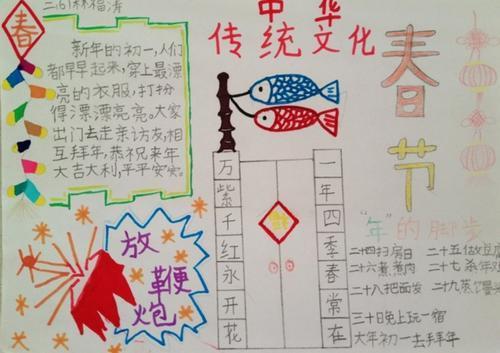 林福涛
春
新年的初一，人们
都早早起来，穿上最漂
亮的衣服，打扮
得漂漂亮亮。大家
出门去走亲访友，相
互拜年，恭祝来年
大吉大利，平平安安。
中华
传统文化
春节
万紫千红永开花
一年四季春常在
放鞭炮
“年”的脚步
二十四扫房日 二十五做豆
二十六煮煮肉 二十七杀年
二十八把面发 二十九蒸
三十晚上玩一宿
大年初一去拜年